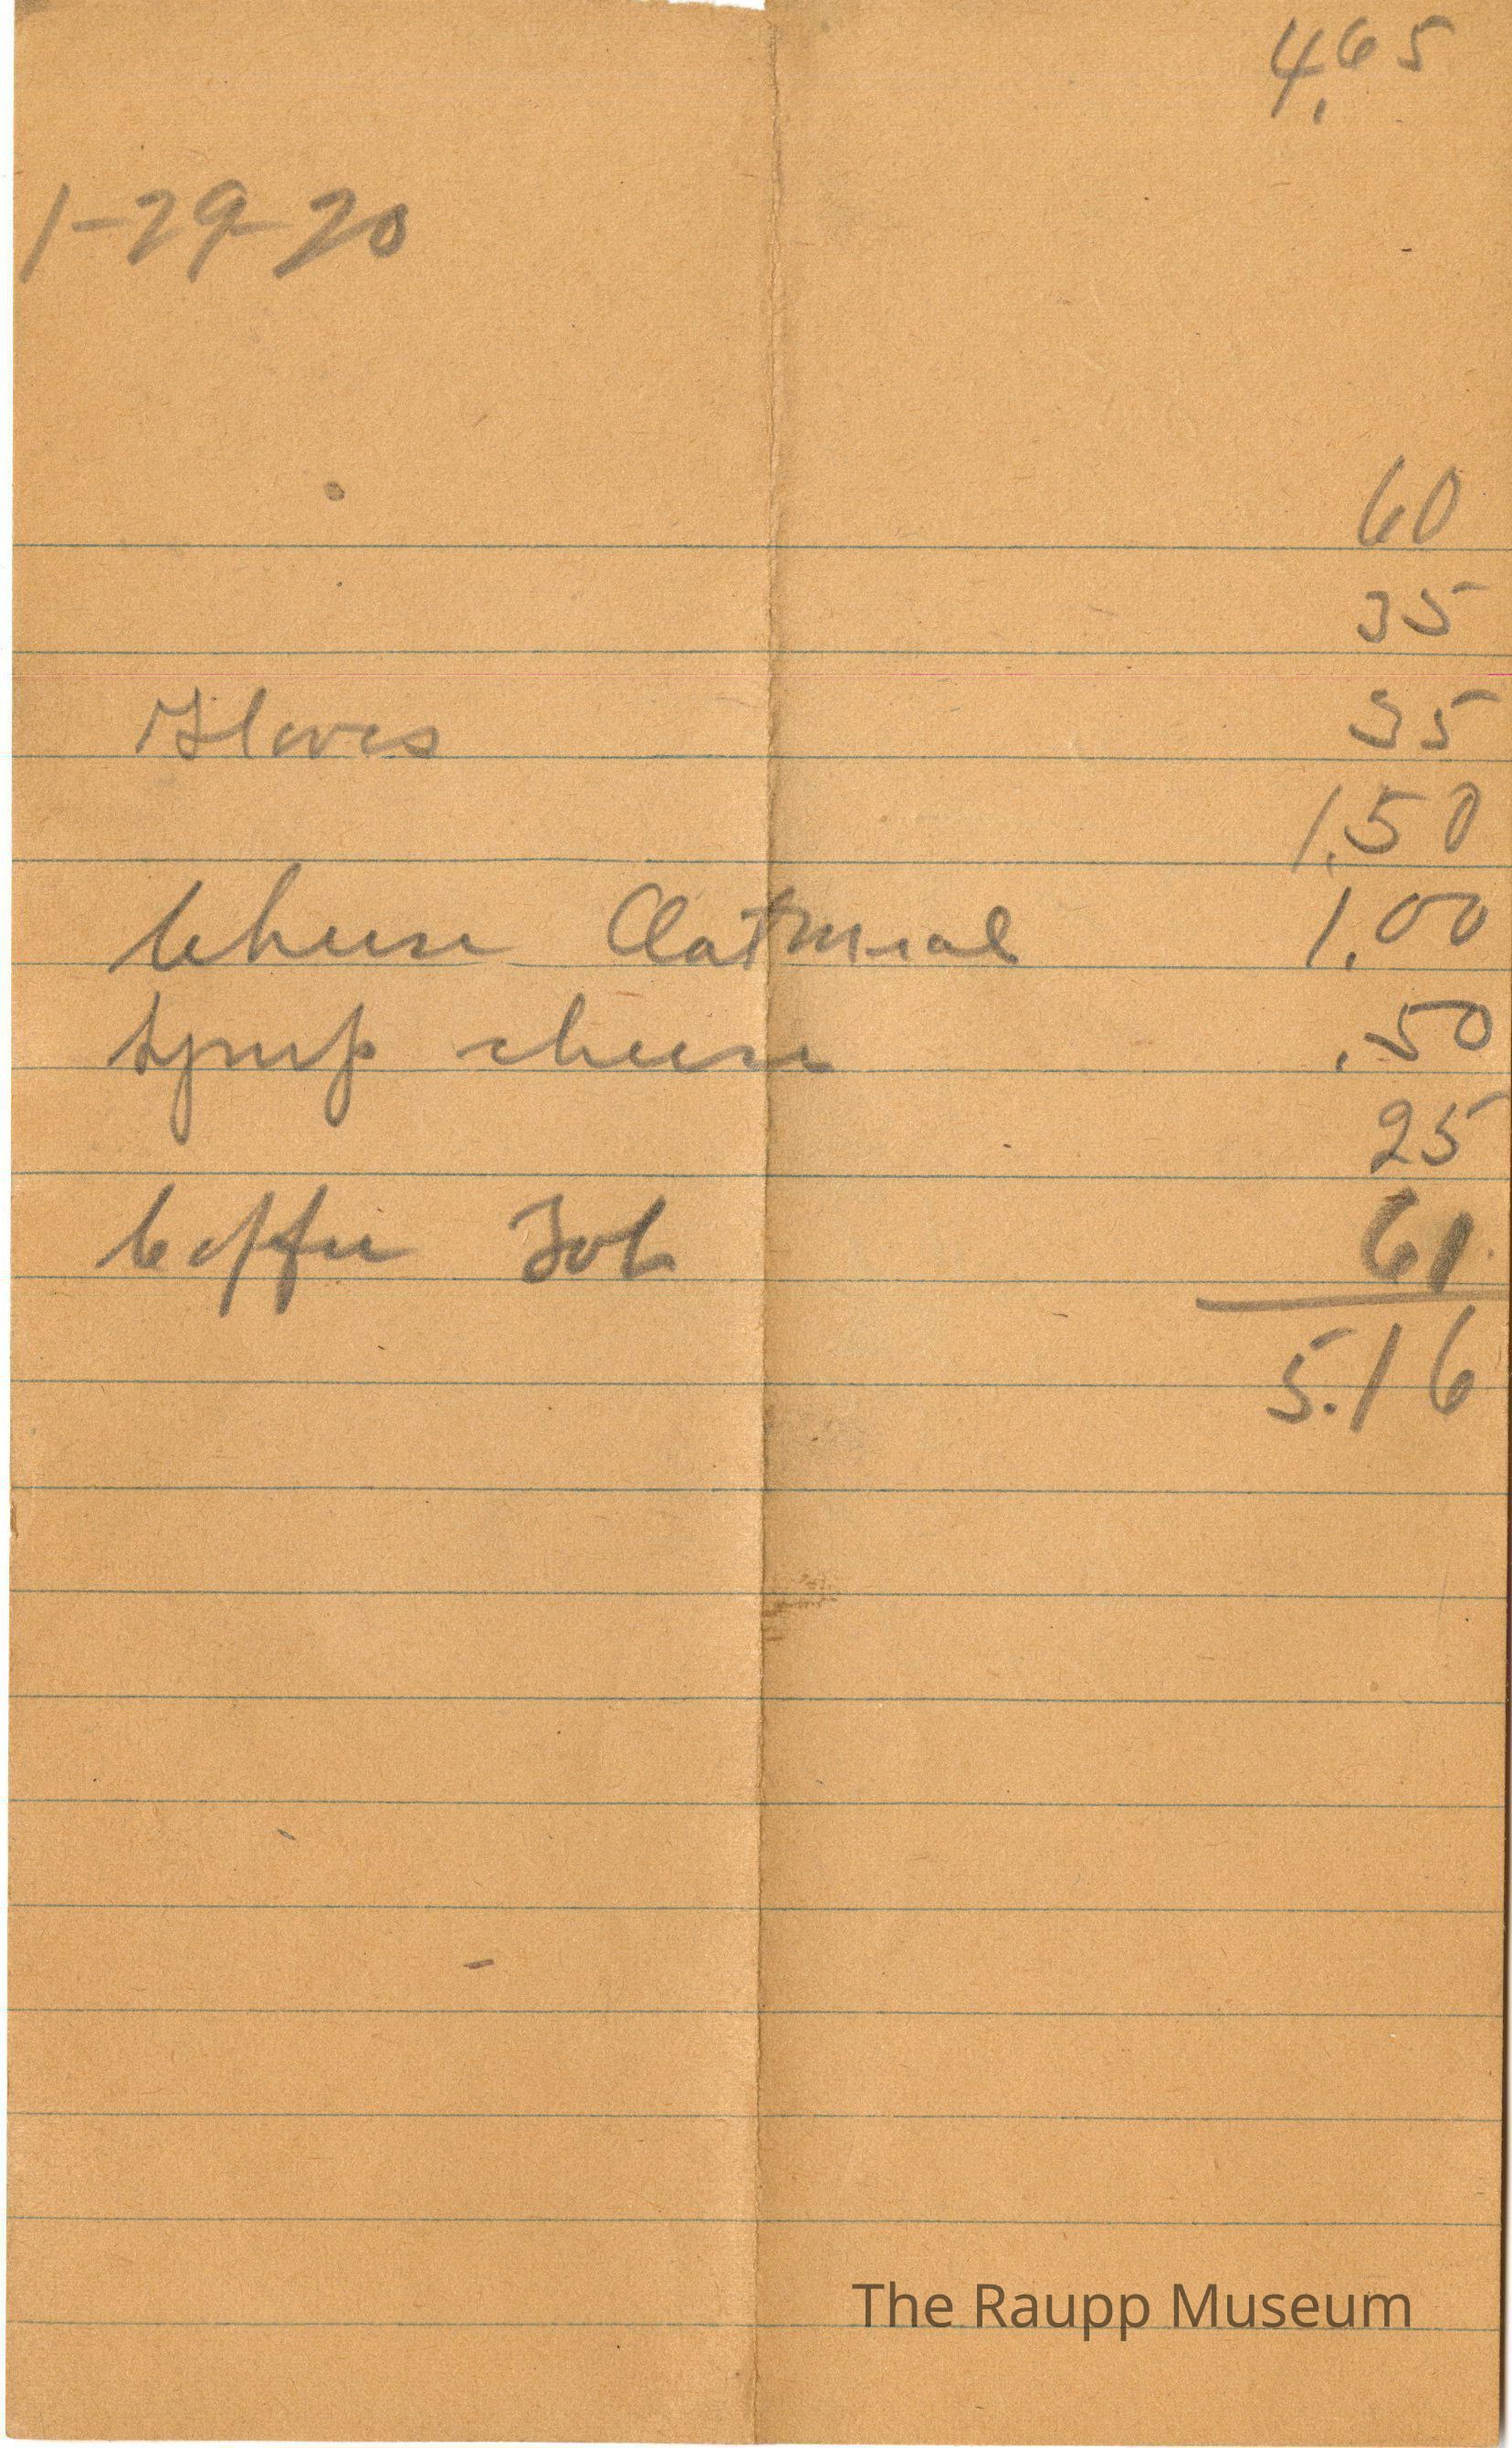 4.65
1-29-20
60
35
Gloves 35
1.50
Cheese Oatmeal 1.00
Syrup cheese .50
25
Coffee Tob 61
5.16
The Raupp Museum